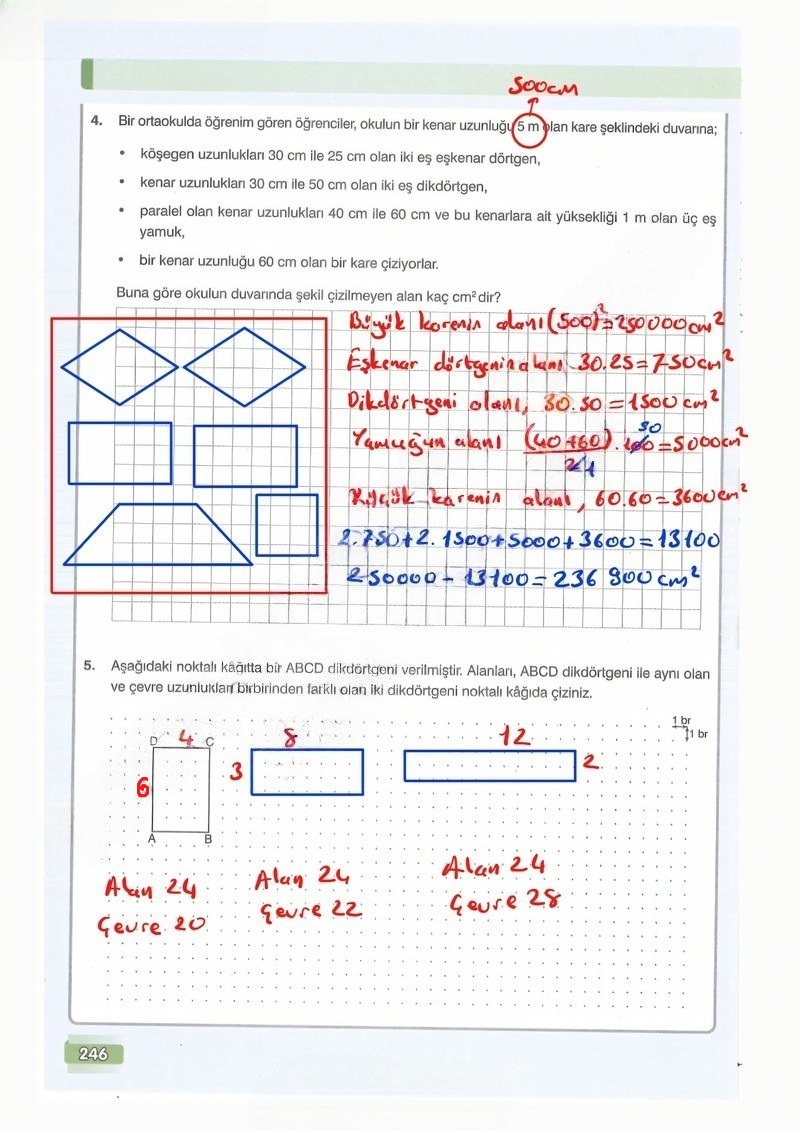 500cm
4. Bir ortaokulda öğrenim gören öğrenciler, okulun bir kenar uzunluğu 5 m olan kare şeklindeki duvarına;
• köşegen uzunlukları 30 cm ile 25 cm olan iki eş eşkenar dörtgen,
• kenar uzunlukları 30 cm ile 50 cm olan iki eş dikdörtgen,
• paralel olan kenar uzunlukları 40 cm ile 60 cm ve bu kenarlara ait yüksekliği 1 m olan üç eş
yamuk,
• bir kenar uzunluğu 60 cm olan bir kare çiziyorlar.
Buna göre okulun duvarında şekil çizilmeyen alan kaç cm² dir?
Büyük karenin alanı (500)²=250000cm²
Eşkenar dörtgenin alanı 30.25=750cm²
Dikdörtgeni alanı, 30.50=1500cm²
Yamuğun alanı (40+60).100=5000cm²
50
2 1
Küçük karenin alanı, 60.60=3600cm²
2.750+2.1500+5000+3600=13100
250000-13100=236 900cm²
5. Aşağıdaki noktalı kâğıtta bir ABCD dikdörtgeni verilmiştir. Alanları, ABCD dikdörtgeni ile aynı olan
ve çevre uzunlukları birbirinden farklı olan iki dikdörtgeni noktalı kâğıda çiziniz.
1 br
1 br
D 4 C 8 12
6 3 2
A B
Alan 24 Alan 24 Alan 24
Çevre 20 Çevre 22 Çevre 28
246